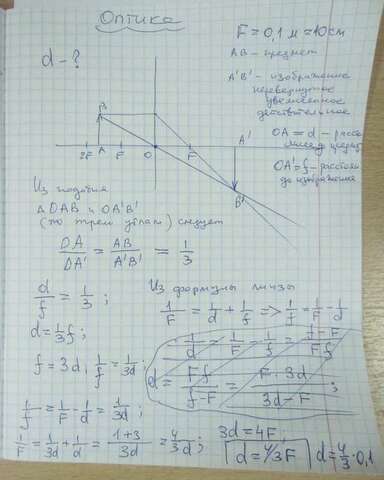 Оптика
F = 0,1 м = 10 см
d - ?
AB - предмет
A'B' - изображение
перевернутое
увеличенное
действительное
B
A
2F
F
O
F
A'
B'
OA = d - расс
OA' = f - расстоян
до изображения
Из подобия
Δ OAB и OA'B'
(по трем углам) следует
OA/OA' = AB/A'B' = 1/3
d/f = 1/3 ;
d = 1/3 f ;
f = 3d ; 1/f = 1/3d ;
Из формулы линзы
1/F = 1/d + 1/f => 1/f = 1/F - 1/d
1/d = 1/F - 1/f = f-F/Ff
d = Ff/f-F = F·3d/3d-F ;
1/f = 1/F - 1/d = 1/3d ;
1/F = 1/3d + 1/d = 1+3/3d = 4/3d ;
3d = 4F ;
d = 4/3 F
d = 4/3 · 0,1